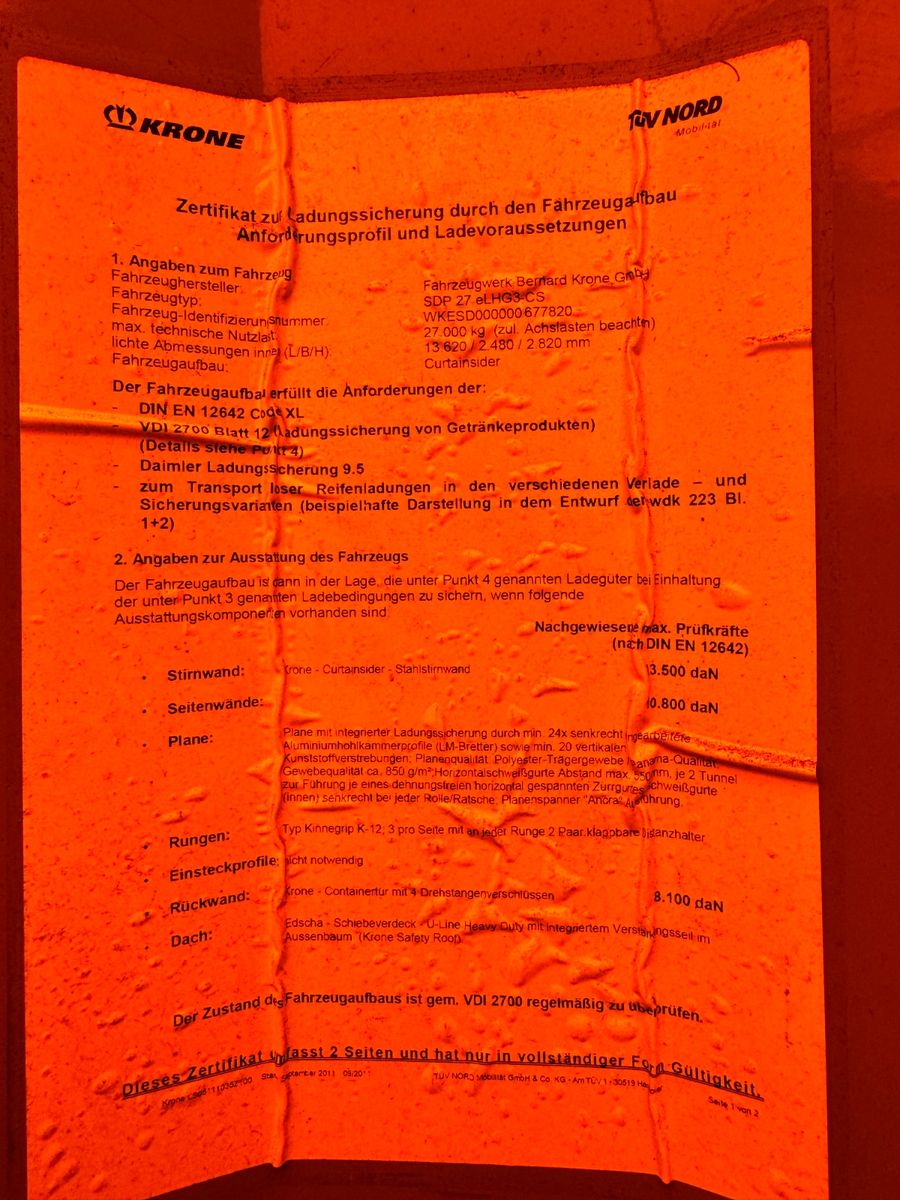 KRONE
TÜV NORD
Mobilität
Zertifikat zur Ladungssicherung durch den Fahrzeugaufbau
Anforderungsprofil und Ladevoraussetzungen
1. Angaben zum Fahrzeug
Fahrzeughersteller: Fahrzeugwerk Bernard Krone GmbH
Fahrzeugtyp: SDP 27 eLHG3-CS
Fahrzeug-Identifizierungsnummer: WKESD000000677820
max. technische Nutzlast: 27.000 kg (zul. Achslasten beachten)
lichte Abmessungen innen (L/B/H): 13.620 / 2.480 / 2.820 mm
Fahrzeugaufbau: Curtainsider
Der Fahrzeugaufbau erfüllt die Anforderungen der:
- DIN EN 12642 Code XL
- VDI 2700 Blatt 12 (Ladungssicherung von Getränkeprodukten)
(Details siehe Punkt 4)
- Daimler Ladungssicherung 9.5
- zum Transport loser Reifenladungen in den verschiedenen Verlade – und
Sicherungsvarianten (beispielhafte Darstellung in dem Entwurf der wdk 223 Bl.
1+2)
2. Angaben zur Ausstattung des Fahrzeugs
Der Fahrzeugaufbau ist dann in der Lage, die unter Punkt 4 genannten Ladegüter bei Einhaltung
der unter Punkt 3 genannten Ladebedingungen zu sichern, wenn folgende
Ausstattungskomponenten vorhanden sind:
Nachgewiesene max. Prüfkräfte
(nach DIN EN 12642)
• Stirnwand: Krone - Curtainsider - Stahlstirnwand 3.500 daN
• Seitenwände: 0.800 daN
• Plane: Plane mit integrierter Ladungssicherung durch min. 24x senkrecht eingearbeitete
Aluminiumhohlkammerprofile (LM-Bretter) sowie min. 20 vertikalen
Kunststoffverstrebungen; Planenqualität: Polyester-Trägergewebe Panama-Qualität,
Gewebequalität ca. 850 g/m²; Horizontalschweißgurte Abstand max. 550mm, je 2 Tunnel
zur Führung je eines dehnungsfreien horizontal gespannten Zurrgurtes, Schweißgurte
(innen) senkrecht bei jeder Rolle/Ratsche; Planenspanner "Ancra" Ausführung,
• Rungen: Typ Kinnegrip K-12; 3 pro Seite mit an jeder Runge 2 Paar klappbare Distanzhalter
• Einsteckprofile: nicht notwendig
• Rückwand: Krone - Containertür mit 4 Drehstangenverschlüssen 8.100 daN
• Dach: Edscha - Schiebeverdeck - U-Line Heavy Duty mit integriertem Verstärkungsseil im
Aussenbaum (Krone Safety Roof)
Der Zustand des Fahrzeugaufbaus ist gem. VDI 2700 regelmäßig zu überprüfen.
Dieses Zertifikat umfasst 2 Seiten und hat nur in vollständiger Form Gültigkeit.
Krone Stand September 2011 09/2011 TÜV NORD Mobilität GmbH & Co. KG - Am TÜV 1 - 30519 Hannover
Seite 1 von 2